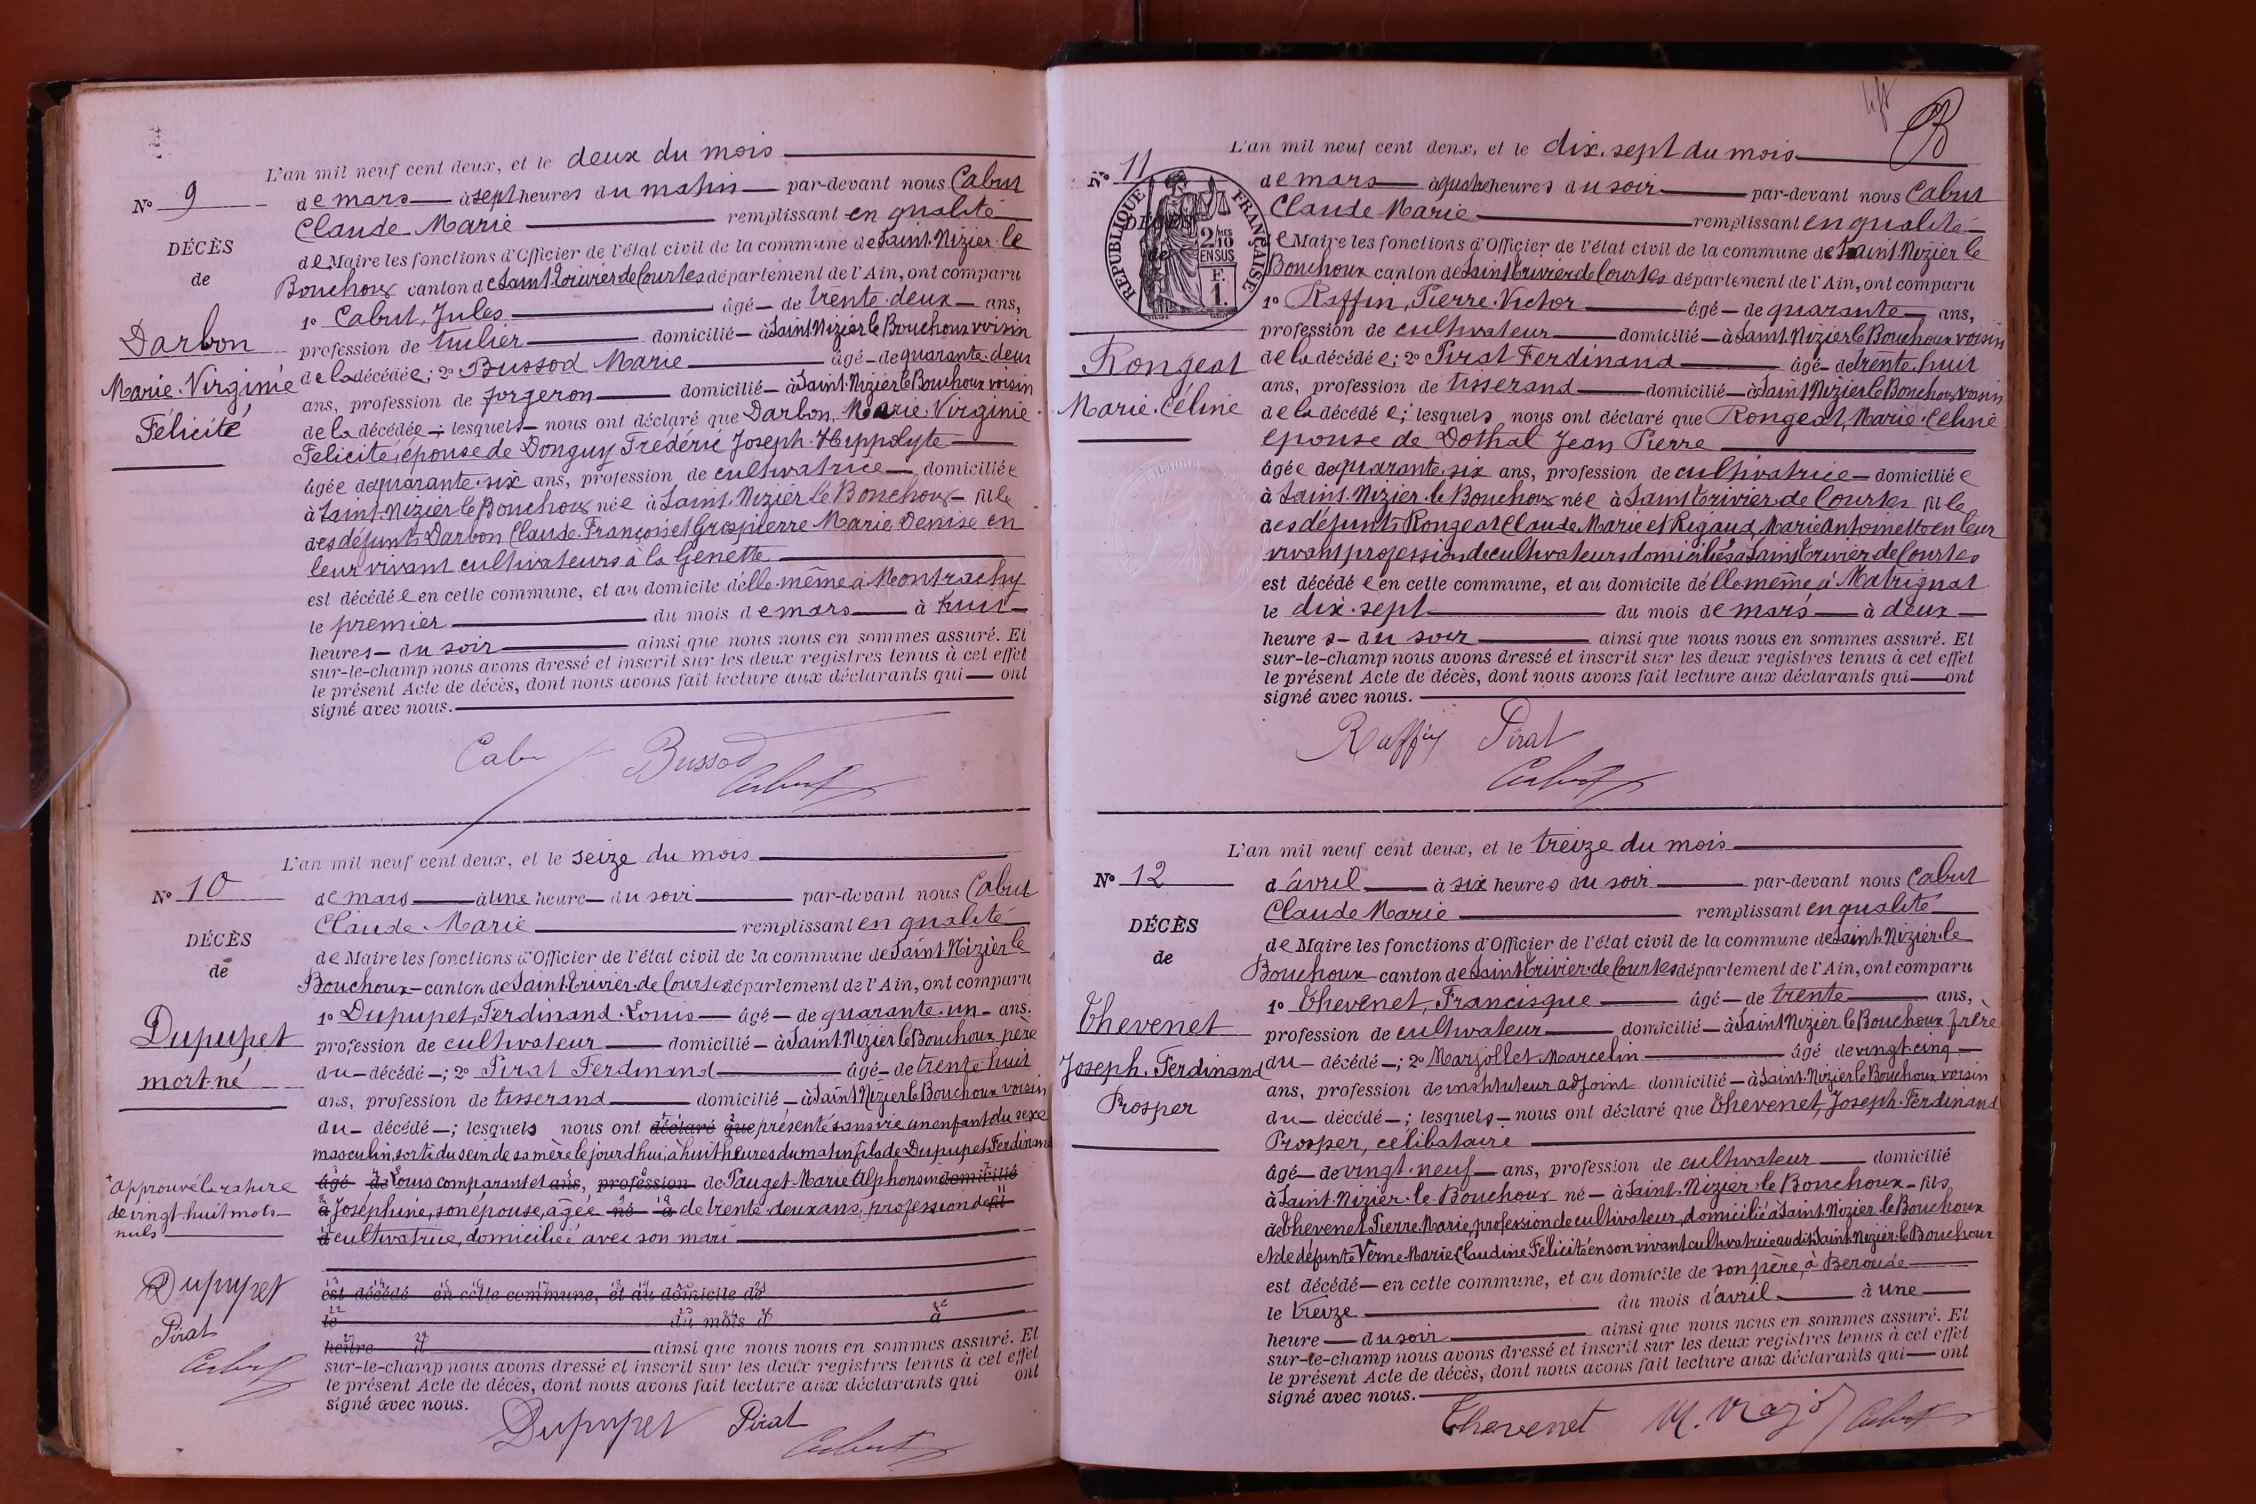 L'an mil neuf cent deux, et le deux du mois
N° 9
de mars à sept heures du matin par-devant nous Cabut
Claude Marie remplissant en qualité
DÉCÈS
de Maire les fonctions d'Officier de l'état civil de la commune de Saint-Nizier-le
de
Bouchoux canton de Saint Trivier de Courtes département de l'Ain, ont comparu
1° Cabut, Jules âgé de trente-deux ans,
Darbon
profession de tuilier domicilié à Saint Nizier le Bouchoux voisin
de la décédée; 2° Bussod Marie âgé de quarante-deux
Marie-Virginie
ans, profession de forgeron domicilié à Saint-Nizier le Bouchoux voisin
Félicité
de la décédée; lesquels nous ont déclaré que Darbon, Marie-Virginie
Félicité, épouse de Donguy Frédéric Joseph-Hippolyte
âgée de quarante-six ans, profession de cultivatrice domiciliée
à Saint-Nizier le Bouchoux née à Saint-Nizier le Bouchoux fille
des défunts Darbon Claude-François et Grospierre Marie Denise en
leur vivant cultivateurs à la Genette
est décédée en cette commune, et au domicile d'elle-même à Montrachy
le premier du mois de mars à huit
heures du soir ainsi que nous nous en sommes assuré. Et
sur-le-champ nous avons dressé et inscrit sur les deux registres tenus à cet effet
le présent Acte de décès, dont nous avons fait lecture aux déclarants qui ont
signé avec nous.
Bussod
Cabut
L'an mil neuf cent deux, et le seize du mois
N° 10
de mars à une heure du soir par-devant nous Cabut
Claude-Marie remplissant en qualité
DÉCÈS
de Maire les fonctions d'Officier de l'état civil de la commune de Saint-Nizier le
de
Bouchoux canton de Saint-Trivier-de Courtes département de l'Ain, ont comparu
1° Dupupet, Ferdinand-Louis âgé de quarante-un ans.
Dupupet
profession de cultivateur domicilié à Saint-Nizier le Bouchoux père
du décédé; 2° Pirat Ferdinand âgé de trente-huit
mort-né
ans, profession de tisserand domicilié à Saint Nizier le Bouchoux voisin
du décédé; lesquels nous ont déclaré que présenté sans vie un enfant du sexe
masculin, sorti du sein de sa mère le jourd'hui, à huit heures du matin fils de Dupupet Ferdinand
âgé de Louis comparant et ans, profession de Pauget Marie Alphonsine domicilié
approuvé la rature
à Joséphine, son épouse, âgée né à de trente-deux ans, profession de fil
de vingt-huit mots
nuls
d cultivatrice, domiciliée avec son mari
Dupupet
est décédé en cette commune, et au domicile de
le du mois d à
Pirat
heure d ainsi que nous nous en sommes assuré. Et
Cabut
sur-le-champ nous avons dressé et inscrit sur les deux registres tenus à cet effet
le présent Acte de décès, dont nous avons fait lecture aux déclarants qui ont
signé avec nous.
Dupupet Pirat
Cabut
L'an mil neuf cent deux, et le dix-sept du mois
N° 11
de mars à quatre heures du soir par-devant nous Cabut
Claude Marie remplissant en qualité
DÉCÈS
de
RÉPUBLIQUE FRANÇAISE
2/10 EN SUS
F. 1.
de Maire les fonctions d'Officier de l'état civil de la commune de Saint-Nizier le
Bouchoux canton de Saint Trivier de Courtes département de l'Ain, ont comparu
1° Raffin, Pierre-Victor âgé de quarante ans,
profession de cultivateur domicilié à Saint-Nizier le Bouchoux voisin
Rongeat
de la décédée; 2° Pirat Ferdinand âgé de trente-huit
ans, profession de tisserand domicilié à Saint Nizier le Bouchoux voisin
Marie-Céline
de la décédée; lesquels nous ont déclaré que Rongeat, Marie-Céline
épouse de Dothal Jean Pierre
âgée de quarante-six ans, profession de cultivatrice domiciliée
à Saint-Nizier-le Bouchoux née à Saint Trivier de Courtes fille
des défunts Rongeat Claude Marie et Rigaud, Marie Antoinette en leur
vivant profession de cultivateurs domiciliés à Saint Trivier de Courtes
est décédée en cette commune, et au domicile d'elle même à Matrignat
le dix-sept du mois de mars à deux
heures du soir ainsi que nous nous en sommes assuré. Et
sur-le-champ nous avons dressé et inscrit sur les deux registres tenus à cet effet
le présent Acte de décès, dont nous avons fait lecture aux déclarants qui ont
signé avec nous.
Raffin Pirat
Cabut
L'an mil neuf cent deux, et le treize du mois
N° 12
d'avril à six heures du soir par-devant nous Cabut
Claude Marie remplissant en qualité
DÉCÈS
de Maire les fonctions d'Officier de l'état civil de la commune de Saint-Nizier-le
de
Bouchoux canton de Saint-Trivier-de Courtes département de l'Ain, ont comparu
1° Thevenet, Francisque âgé de trente ans,
Thevenet
profession de cultivateur domicilié à Saint Nizier le Bouchoux frère
Joseph-Ferdinand
du décédé; 2° Marjollet Marcelin âgé de vingt-cinq
ans, profession de instituteur adjoint domicilié à Saint-Nizier le Bouchoux voisin
Prosper
du décédé; lesquels nous ont déclaré que Thevenet, Joseph-Ferdinand
Prosper, célibataire
âgé de vingt-neuf ans, profession de cultivateur domicilié
à Saint-Nizier-le-Bouchoux né à Saint-Nizier-le Bouchoux fils
de Thevenet Pierre Marie, profession de cultivateur, domicilié à Saint-Nizier-le Bouchoux
et de défunte Verne Marie Claudine Félicité en son vivant cultivatrice audit Saint-Nizier-le Bouchoux
est décédé en cette commune, et au domicile de son père, à Beroude
le treize du mois d'avril à une
heure du soir ainsi que nous nous en sommes assuré. Et
sur-le-champ nous avons dressé et inscrit sur les deux registres tenus à cet effet
le présent Acte de décès, dont nous avons fait lecture aux déclarants qui ont
signé avec nous.
Thevenet Cabut